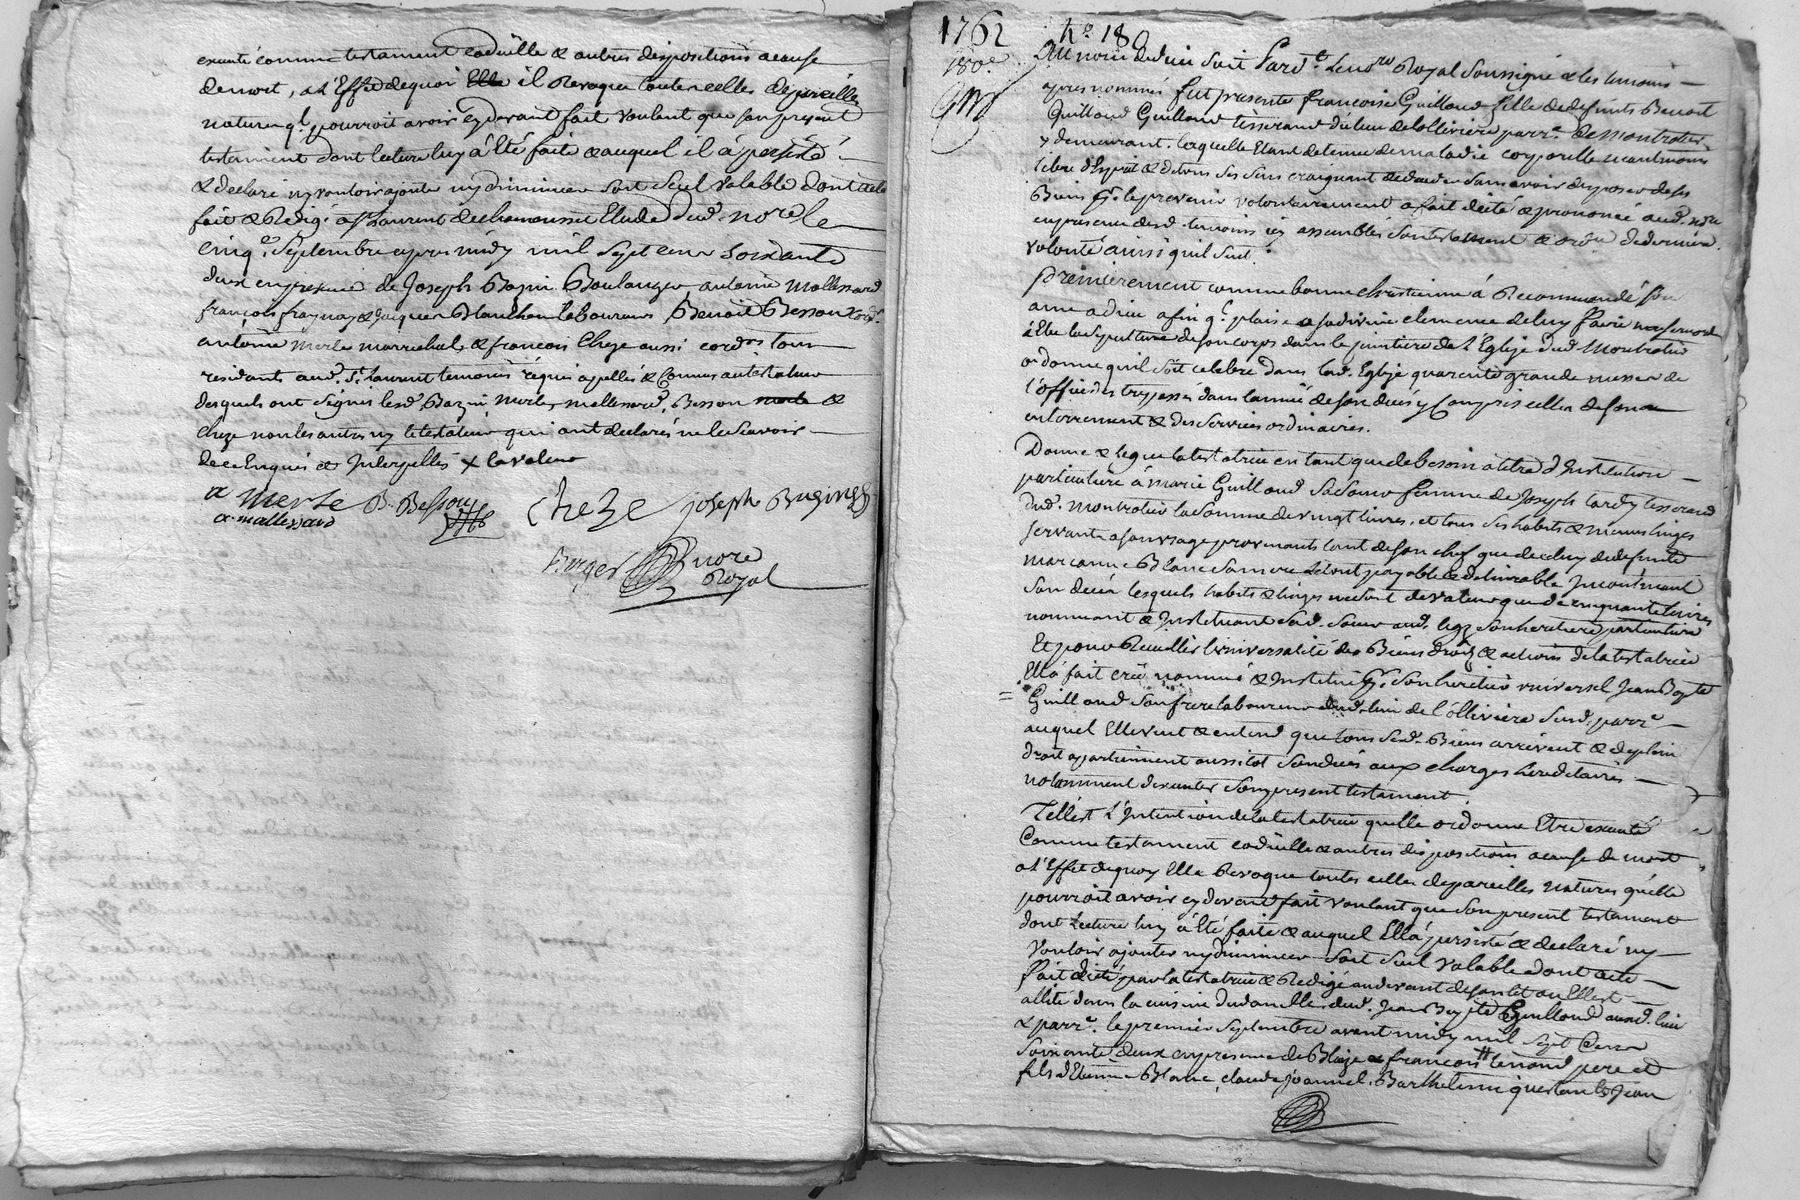 exœuté comme testament codicille & autres dispositions a cause
de mort, a l'Effet de quoi il Revoque toutes celles de pareille
nature q.l pourroit avoir cy devant fait voulant que son present
testament dont lecture luy a Eté faite & auquel il a persisté
& declaré ny vouloir ajouter ny diminuer soit seul valable dont acte
fait & Redigé a S.t Laurent de chamousset Etude dud. nore le
cinq.e Septembre apres midy mil sept cent soixante
deux en presence de Joseph Bazin Boulanger antoine mallessard
francois fraynay & Jacques Blanchon laboureurs Benoît Besson cord.r
antoine merle marrechal, & francois Cheze aussi cord.rs tous
residants aud. S.t Laurent temoins requis apellés & connus au testateur
desquels ont signés lesd. Bazin, merle, mallessard, Besson &
Cheze non les autres ny le testateur qui ont declarés ne le scavoir
de ce Enquis & Interpellés
a merle B. Besson Cheze joseph Bazin
a. mallessard
nore
Royal
1762 N.o 180
180.e
Au nom de dieu soit Pard.t le no.re Royal soussigné & les temoins
apres nommés fut presente francoise Guilloud fille de defunts Benoit
Guilloud tisserand du lieu de lollivière parr.e de Montrotier
y demeurant. laquelle Etant detenue de maladie corporelle neantmoins
libre d'Esprit & de tous ses sens craignant de deceder sans avoir disposer de ses
Biens p.r le prevenir volontairement a fait dicté & prononcé aud. no.re
en presence desd. temoins icy assemblés son testament & ordre de derniere
volonté ainsi qu'il suit.
premierement comme bonne chretienne á Recommandé son
ame a dieu afin q.l plaise a sa divine clemence de luy faire misericorde
Elle la sepulture de son corps dans le cimetiere de L'Eglise dud. Montrotier
ordonne qu'il soit celebré dans lad. Eglise quarente grande messes de
l'office des trepassés dans l'année de son decés y compris celles de son
enterrement & des services ordinaires.
Donne & legue la testatrice en tant que de besoin a titre d'Institution
particuliere á marie Guilloud sa soeur femme de Joseph tardy tisserand
dud. montrotier la somme de vingt livres, et tous ses habits & menus linges
servants a son usage provenants tant de son chef que de celuy de defunte
marianne Blanc sa mere le tout payable & delivrable Incontinant
son decés lesquels habits & linges ne sont de valeur que de cinquante livres
nommant & Instituant sad. soeur aud. legs son heritiere particuliere
Et pour Recueillir l'universalité des Biens droits & actions de la testatrice
Ella fait créé nommé & Institué p.r son heritier universel Jean Bap.te
Guilloud son frere laboureur dud. lieu de l'ollivière susd. parr.e
auquel Elle veut & entend que tous sesd. Biens arrivent & de plein
droit apartiennent aussitot son decés aux charges hereditaires
notamment d'executer son present testament.
Tell'est L'Intention de la testatrice quelle ordonne Etre executé
Comme testament codicille & autres dispositions a cause de mort
a l'Effet de quoy Elle Revoque toutes celles de pareilles natures qu'elle
pourroit avoir cy devant fait voulant que son present testament
dont Lecture luy a Eté faite & auquel Ella persisté & declaré ny
vouloir ajouter ny diminuer soit seul valable dont acte
fait dicté par la testatrice & Redigé au devant de son lit ou Ell'est
allité dans la cuisine du domicille dud. Jean Bap.te Guilloud ausd. lieu
& parr.e. le premier Septembre avant midy mil sept Cent
soixante deux en presence de Blaize & francois tenand pere et
fils d'Etienne Blanc, claude joannel, Barthelemi questant & Jean